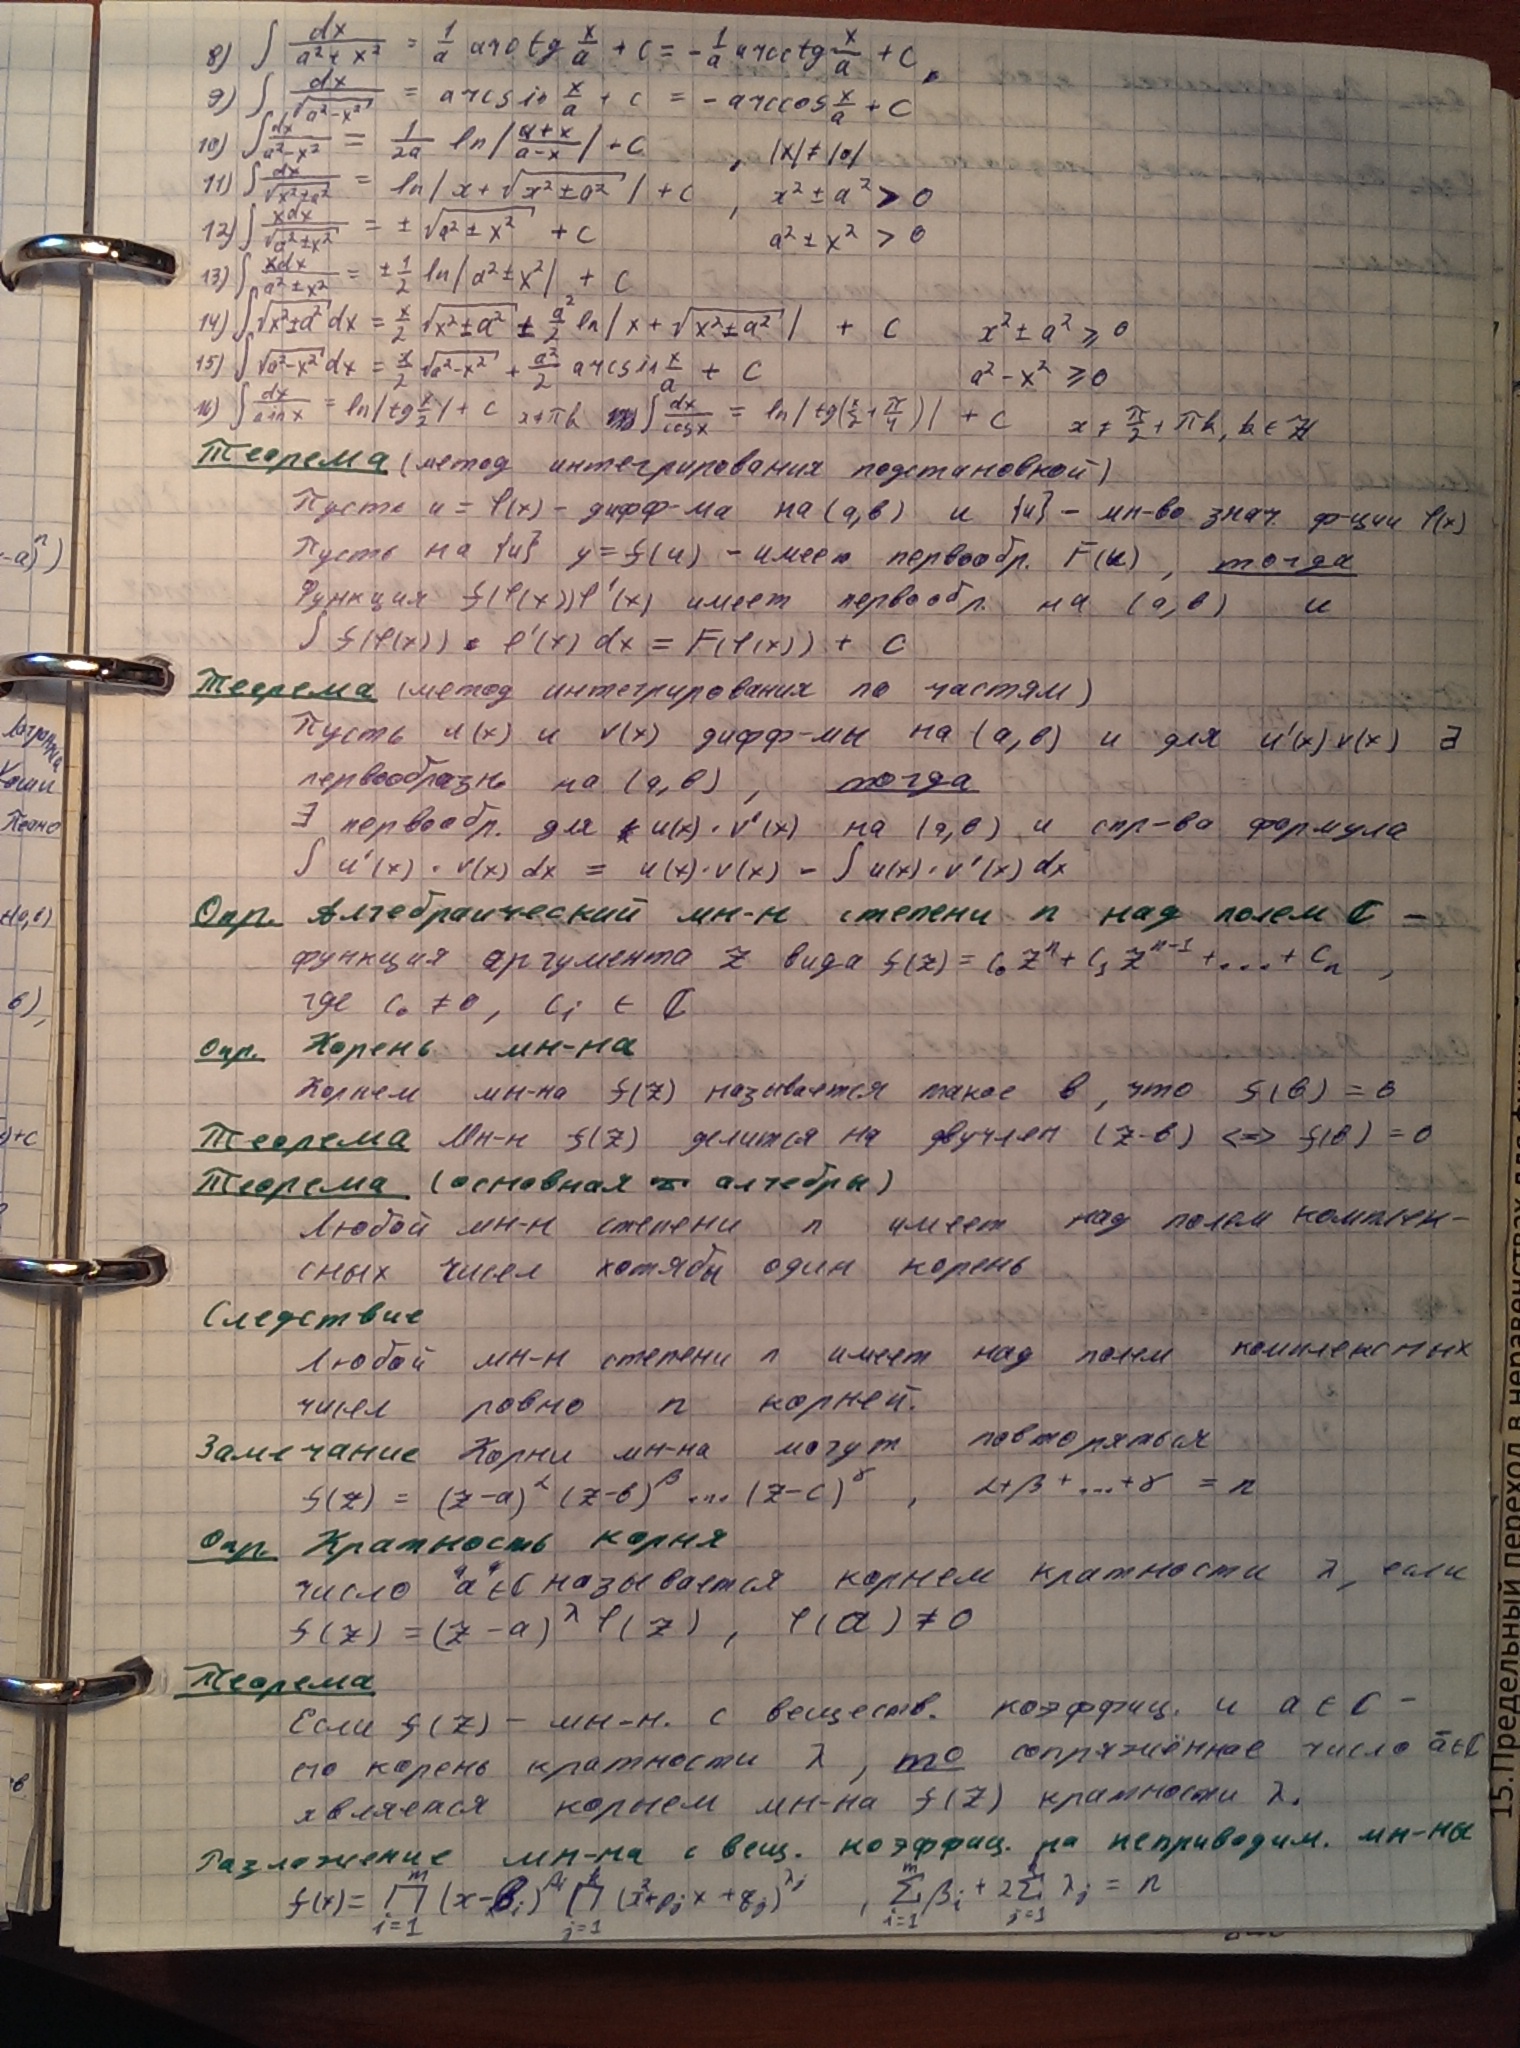 8) ∫ dx/(a²+x²) = 1/a arctg x/a + C = -1/a arcctg x/a + C,
9) ∫ dx/√(a²-x²) = arcsin x/a + C = -arccos x/a + C
10) ∫ dx/(a²-x²) = 1/2a ln|(a+x)/(a-x)| + C , |x| ≠ |a|
11) ∫ dx/√(x²±a²) = ln|x+√(x²±a²)| + C , x²±a² > 0
12) ∫ xdx/√(a²±x²) = ±√(a²±x²) + C a²±x² > 0
13) ∫ xdx/(a²±x²) = ±1/2 ln|a²±x²| + C
14) ∫ √(x²±a²) dx = x/2 √(x²±a²) ± a²/2 ln|x+√(x²±a²)| + C x²±a² ⩾ 0
15) ∫ √(a²-x²) dx = x/2 √(a²-x²) + a²/2 arcsin x/a + C a²-x² ⩾ 0
16) ∫ dx/sin x = ln|tg x/2| + C x≠πk ∫ dx/cos x = ln|tg(x/2+π/4)| + C x ≠ π/2 + πk, k ∈ Z
Теорема (метод интегрирования подстановкой)
Пусть u = φ(x) - дифф-ма на (a,b) и {u} - мн-во знач. ф-ции φ(x)
Пусть на {u} y = f(u) - имеет первообр. F(u), тогда
Функция f(φ(x))φ'(x) имеет первообр. на (a,b) и
∫ f(φ(x)) · φ'(x) dx = F(φ(x)) + C
Теорема (метод интегрирования по частям)
Пусть u(x) и v(x) дифф-мы на (a,b) и для u'(x)v(x) ∃
первообразн на (a,b), тогда
∃ первообр. для u(x)·v'(x) на (a,b) и спр-ва формула
∫ u'(x)·v(x) dx = u(x)·v(x) - ∫ u(x)·v'(x) dx
Опр. Алгебраический мн-н степени n над полем ℂ -
функция аргумента z вида f(z) = c₀zⁿ + c₁zⁿ⁻¹ + ... + cₙ ,
где c₀ ≠ 0, cᵢ ∈ ℂ
Опр. Корень мн-на
Корнем мн-на f(z) называется такое b, что f(b) = 0
Теорема Мн-н f(z) делится на двучлен (z-b) <=> f(b) = 0
Теорема (основная т. алгебры)
Любой мн-н степени n имеет над полем комплек-
сных чисел хотябы один корень
Следствие
Любой мн-н степени n имеет над полем комплексных
чисел ровно n корней.
Замечание Корни мн-на могут повторяться
f(z) = (z-a)^α (z-b)^β ... (z-c)^γ , α+β+...+γ = n
Опр. Кратность корня
число "a"∈ℂ называется корнем кратности λ, если
f(z) = (z-a)^λ φ(z), φ(a) ≠ 0
Теорема
Если f(z) - мн-н. с веществ. коэффиц. и a ∈ ℂ -
его корень кратности λ, то сопряжённое число ā∈ℂ
является корнем мн-на f(z) кратности λ.
Разложение мн-на с вещ. коэффиц. на неприводим. мн-ны
f(x) = ∏ᵢ₌₁ᵐ (x-bᵢ)^βᵢ ∏ⱼ₌₁ (x²+pⱼx+qⱼ)^λⱼ , ∑ᵢ₌₁ᵐ βᵢ + 2∑ⱼ₌₁ λⱼ = n
-a)ⁿ)
Лагранжа
Коши
Пеано
b),
)+c
15.Предельный переход в неравенствах для